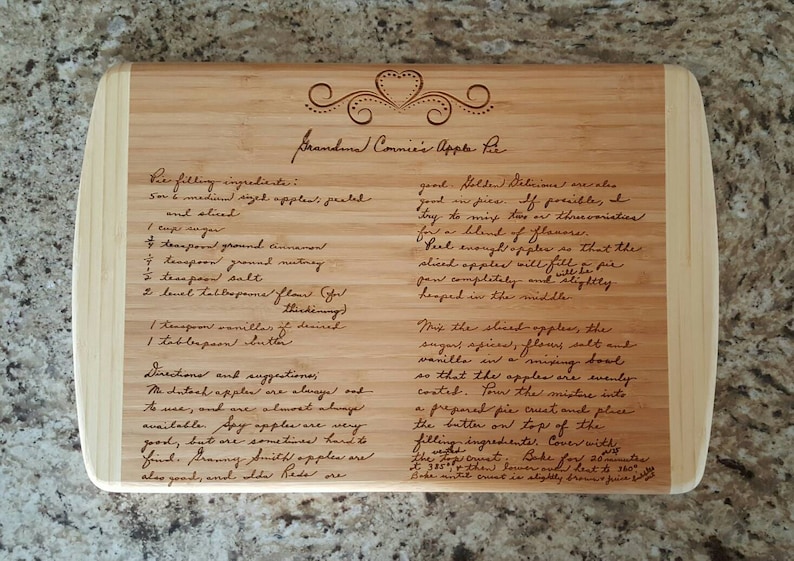 Grandma Connie's Apple Pie
Pie filling ingredients:
5 or 6 medium sized apples; peeled
and sliced
1 cup sugar
3/4 teaspoon ground cinnamon
1/4 teaspoon ground nutmeg
1/2 teaspoon salt
2 level tablespoons flour (for
thickening)
1 teaspoon vanilla, if desired
1 tablespoon butter
Directions and suggestions;
McIntosh apples are always
to use, and are almost always
available. Spy apples are very
good, but are sometimes hard to
find. Granny Smith apples are
also good, and Ida Reds are
good. Golden Delicious are also
good in pies. If possible, I
try to mix two or three varieties
for a blend of flavors.
Peel enough apples so that the
sliced apples will fill a pie
pan completely and will be slightly
heaped in the middle.
Mix the sliced apples, the
sugar, spices, flour, salt and
vanilla in a mixing bowl
so that the apples are evenly
coated. Pour the mixture into
a prepared pie crust and place
the butter on top of the
filling ingredients. Cover with
the vented top crust. Bake for 20 or 25 minutes
at 385°, & then lower oven heat to 360°
Bake until crust is slightly brown & juice bubbles
out